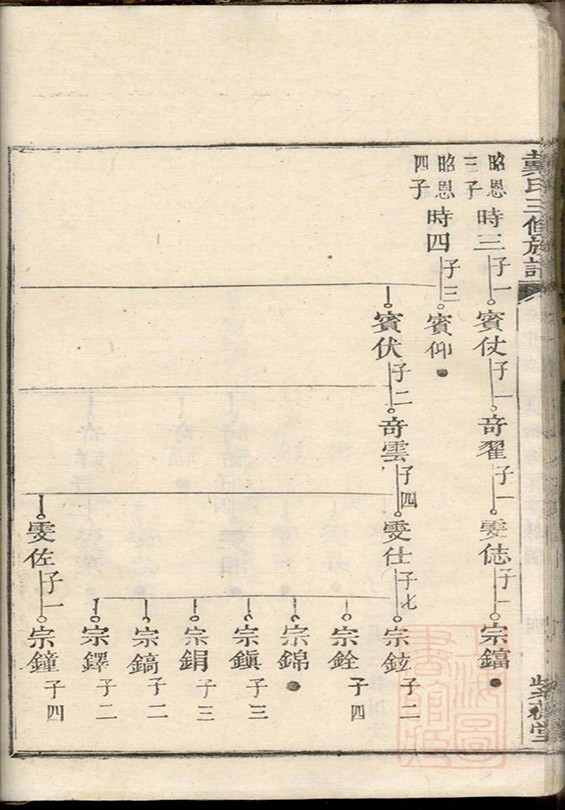 戴氏三修族譜
昭恩三子
時三
子一
賓仗
子一
奇翟
子一
雯俧
子一
宗鎬
昭恩四子
時四
子三
賓仰
賓伏
子二
奇雲
子四
雯仕
子七
宗鉉
子二
宗銓
子四
宗錦
宗鎮
子三
宗鋗
子三
宗鎬
子二
宗鐸
子二
雯佐
子一
宗鐘
子四
上海圖書館藏